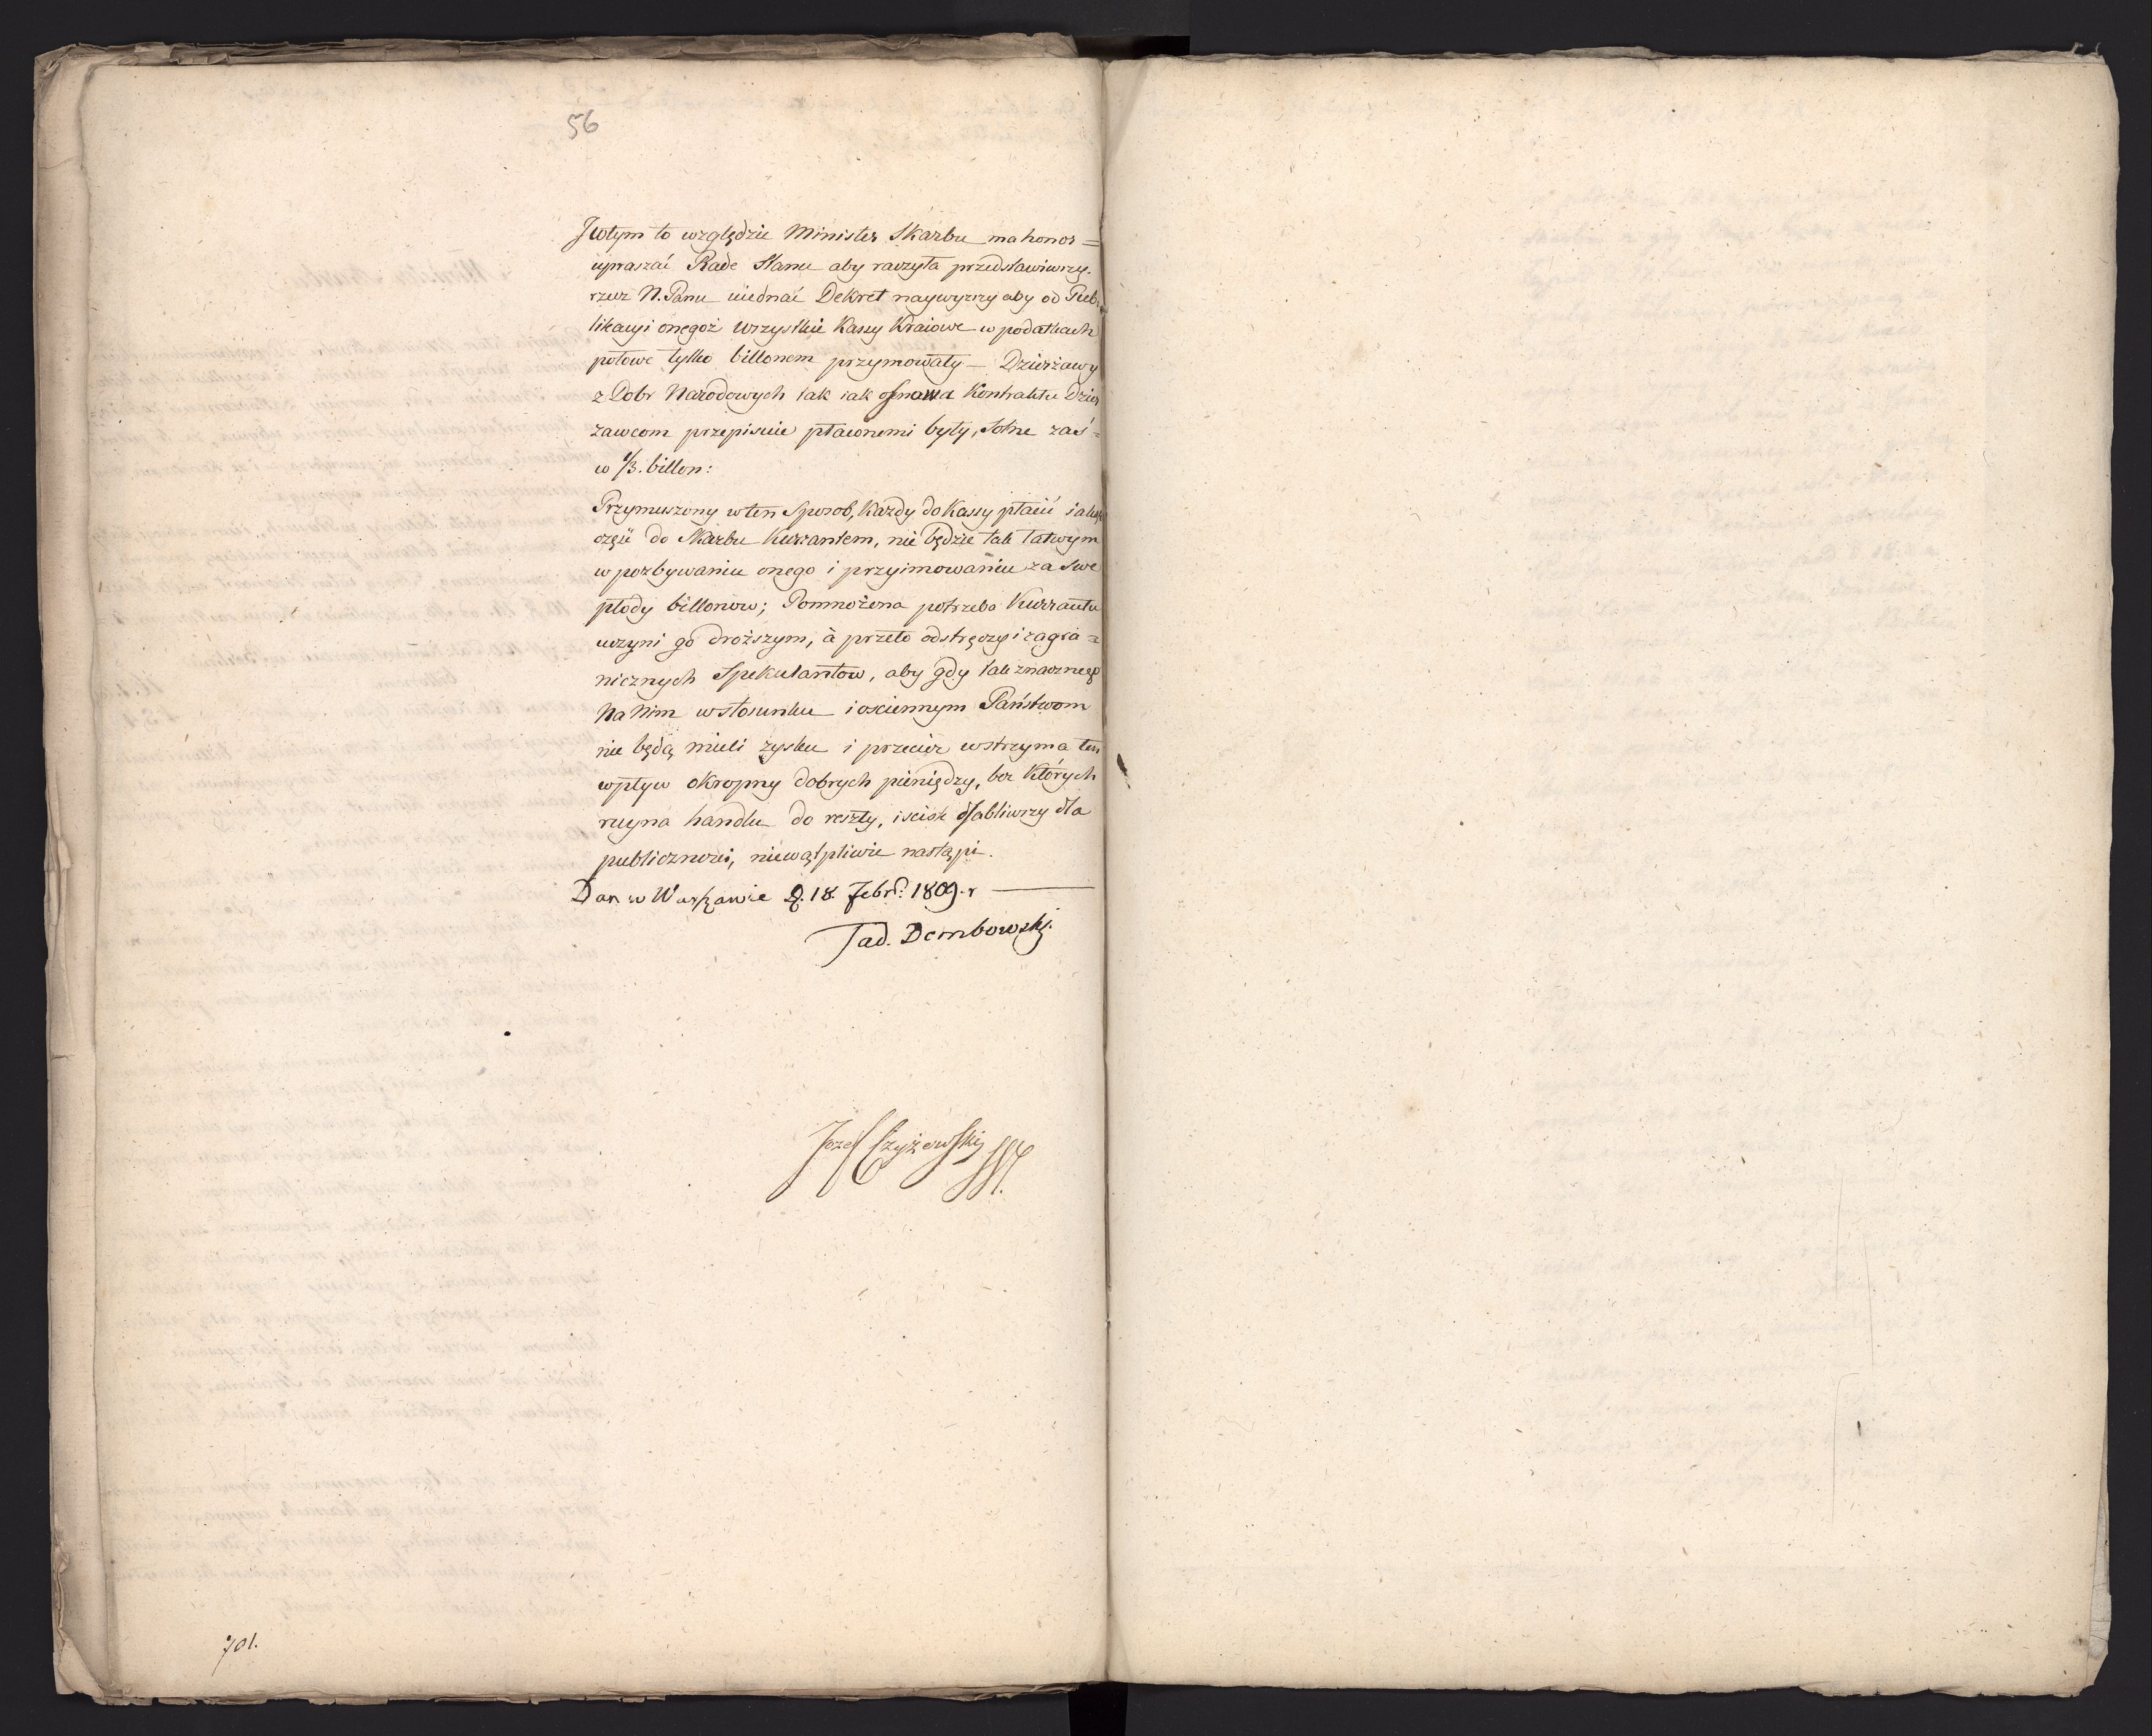 56
J wtym to względzie Minister Skarbu ma honor =
upraszać Rade Stanu aby raczyła przedstawiwszy
rzecz N. Panu uiednać Dekret naywyższy aby od Pub=
likacyi onegoż wszystkie Kassy Kraiowe w podatkach
połowe tylko billonem przymowały — Dzierżawy
z Dobr Narodowych tak iak osnowa Kontraktu Dzier
żawcom przepisuie płaconemi były, Solne zaś =
w 1/3. billon:
Przymuszony w ten Sposob, Każdy do Kassy płacić iakąś
część do Skarbu Kurrantem, nie będzie tak łatwym
w pozbywaniu onego i przyimowaniu za Swe
płody billonow; Pomnożona potrzeba Kurrantu
uczyni go droższym, à przeto odstręczy i zagra =
nicznych Spekulantow, aby gdy tak znacznego
Na Nim w stosunku i osciennym Państwom
nie będą mieli zysku i przecież wstrzyma ten
wpływ okropny dobrych pieniędzy, bez Których
ruyna handlu do reszty, i scisk dla
publicznosci, niewątpliwie nastąpi.
Dan w Warszawie D. 18. Febr: 1809. r
Tad. Dembowski.
Jozef Czyżewski
701.